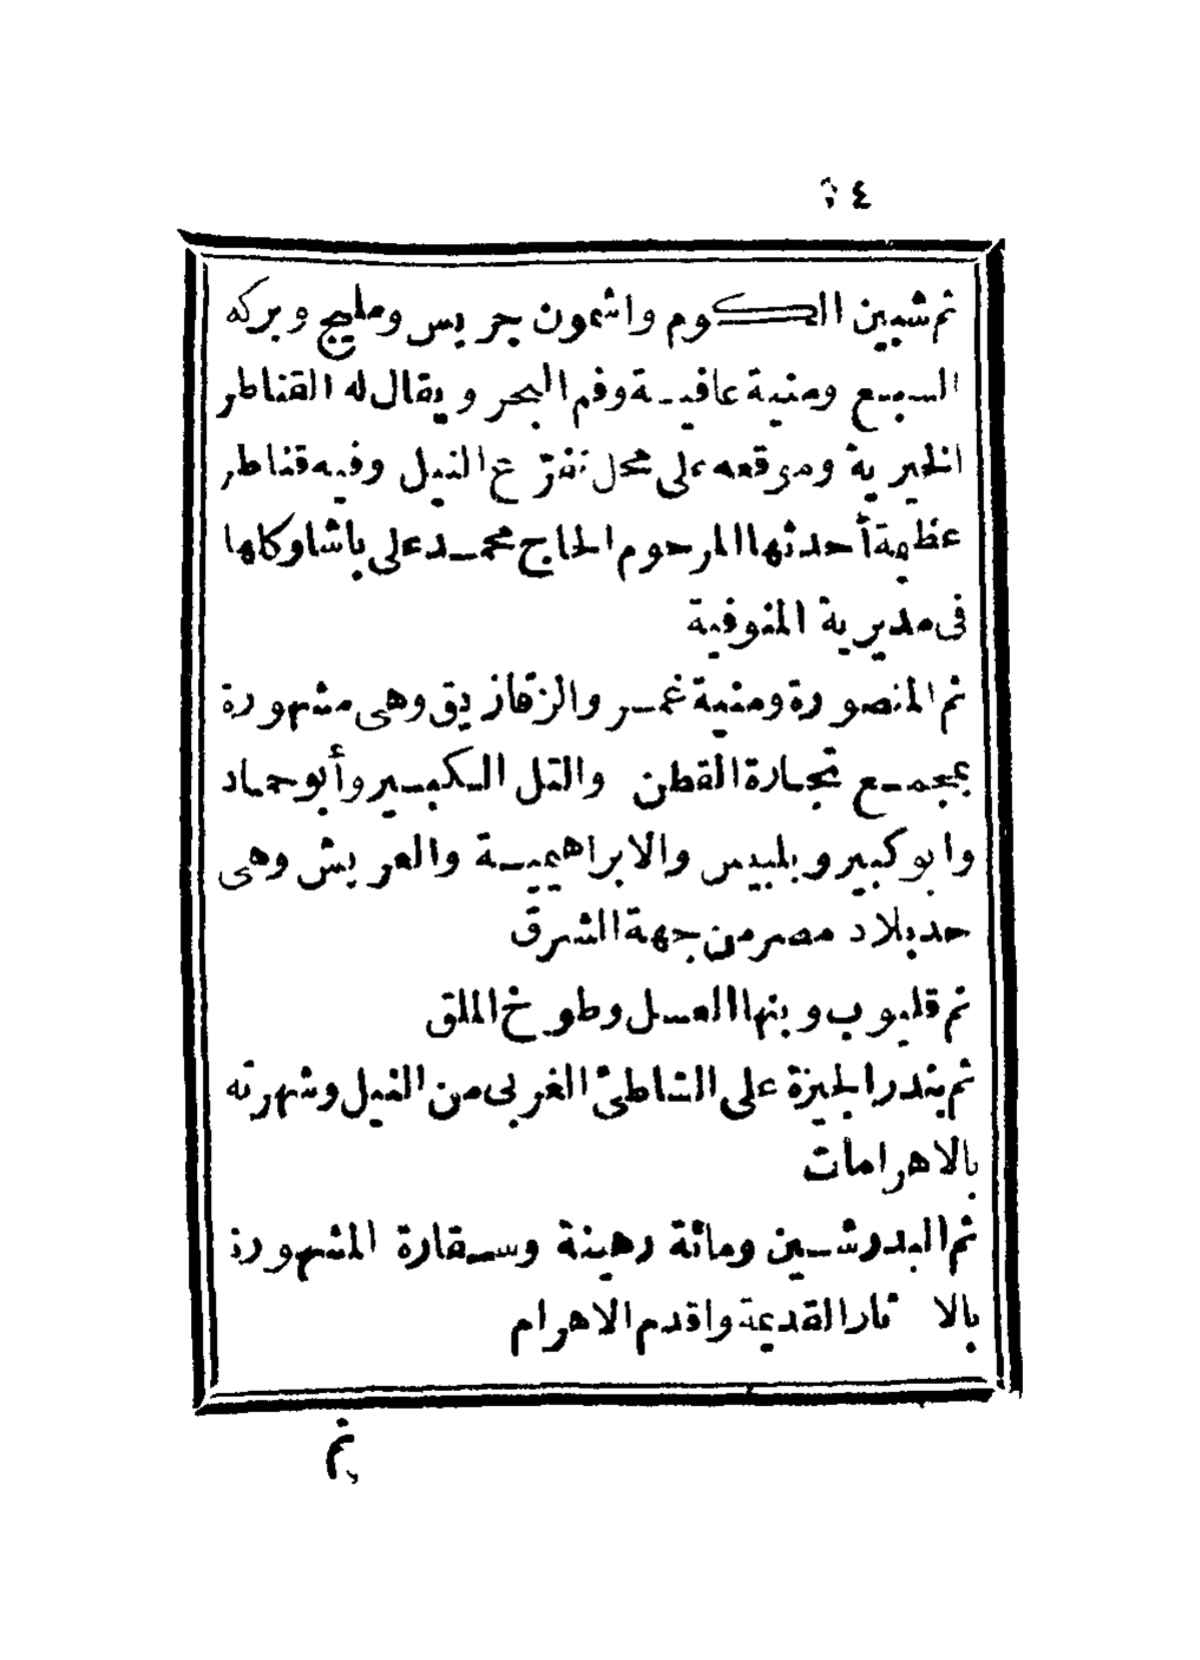 ثم شبين الكوم واشمون جريس ومليج وبركه
السبع ومنية عافية وفم البحر ويقال له القناطر
الخيرية وموقعه على محل تفرّع النيل وفيه قناطر
عظيمة أحدثها المرحوم الحاج محمد على باشا وكلها
فى مديرية المنوفية
ثم المنصورة ومنية غمر والزقازيق وهى مشهورة
بمجمع تجارة القطن والتل الكبير وأبو حماد
وابو كبير وبلبيس والابراهيمية والعريش وهى
حد بلاد مصر من جهة الشرق
ثم قليوب وبنها العسل وطوخ الملق
ثم بندر الجيزة على الشاطئ الغربى من النيل وشهرته
بالاهرامات
ثم البدرشين ومائة رهينة وسقارة المشهورة
بالا ثار القديمة واقدم الاهرام
ثم